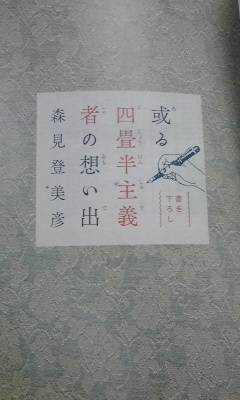 或る
四畳半主義
者の想い出
森見登美彦
書き
下ろし